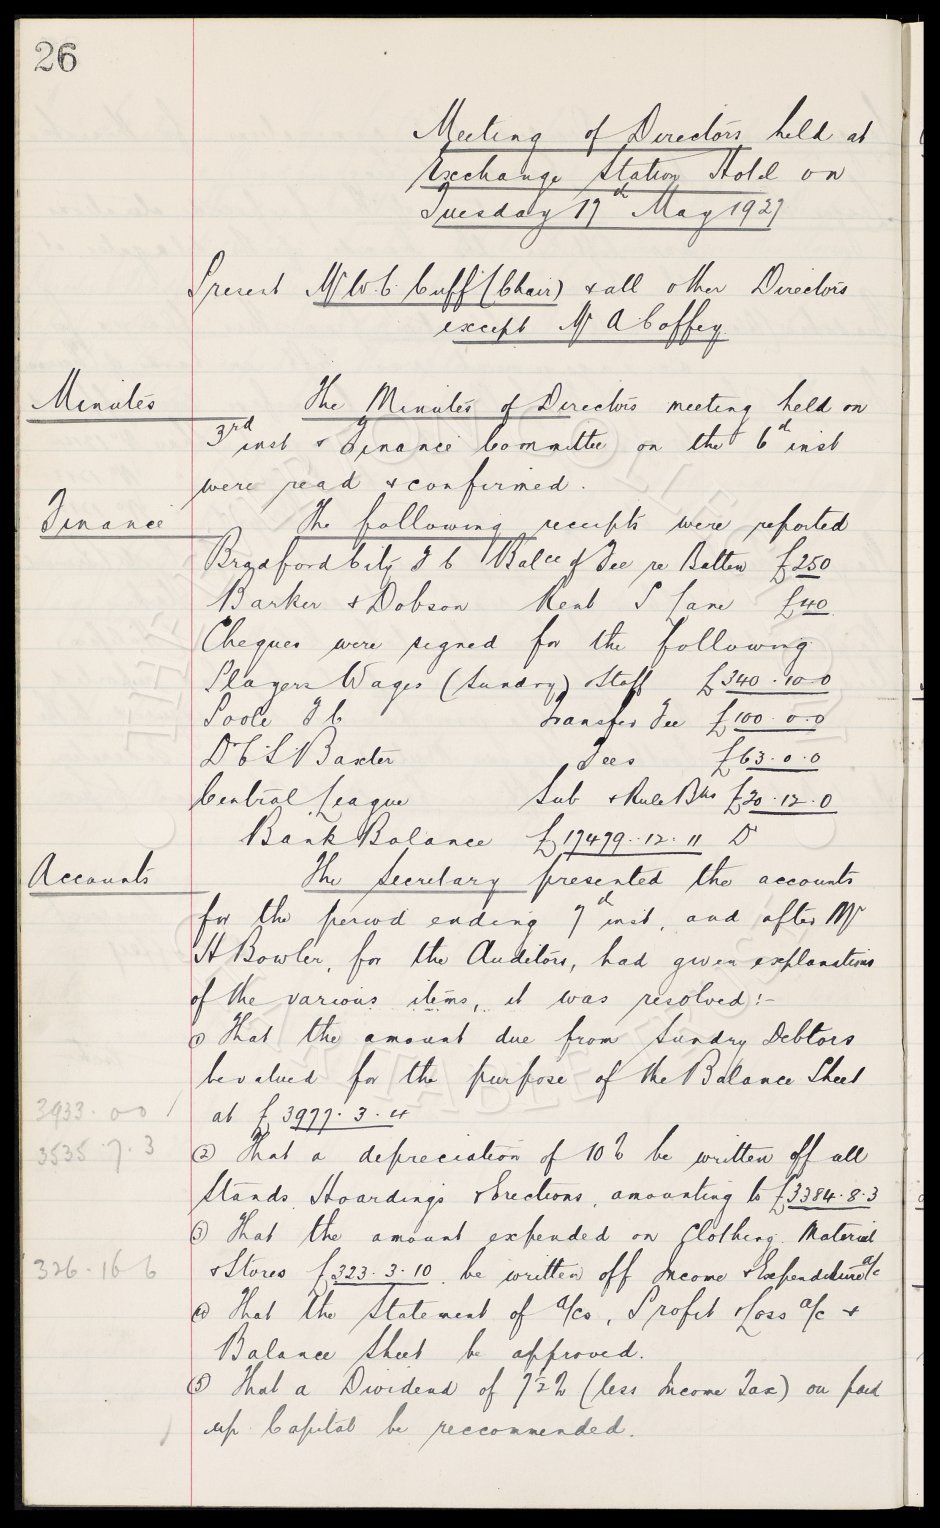 26
Meeting of Directors held at
Exchange Station Hotel on
Tuesday 17th May 1927
Present Mr W.C. Cuff (Chair) & all other Directors
except Mr A Coffey.
Minutes
The Minutes of Directors meeting held on
3rd inst & Finance Committee on the 6th inst
were read & confirmed.
Finance
The following receipts were reported
Bradford City F C Balce of Fee re Batten £250
Barker & Dobson Rent S Lane £40
Cheques were signed for the following
Players Wages (Sundry) Staff £340.10.0
Poole F C Transfer Fee £100.0.0
Dr C S Baxter Fees £63.0.0
Central League Sub & Rule Bks £20.12.0
Bank Balance £17479.12.11 Dr
Accounts
The Secretary presented the accounts
for the period ending 7th inst, and after Mr
H Bowler, for the Auditors, had given explanations
of the various items, it was resolved:-
① That the amount due from Sundry Debtors
be valued for the purpose of the Balance Sheet
3933.0 0
at £3977.3.4
3535.7.3
② That a depreciation of 10% be written off all
Stands Hoardings & Erections, amounting to £3384.8.3
③ That the amount expended on Clothing Material
326.16 6
& Stores £323.3.10 be written off Income & Expenditure a/c
④ That the Statement of a/cs, Profit & Loss a/c &
Balance Sheet be approved.
⑤ That a Dividend of 7½% (less Income Tax) on paid
up Capital be reccommended.